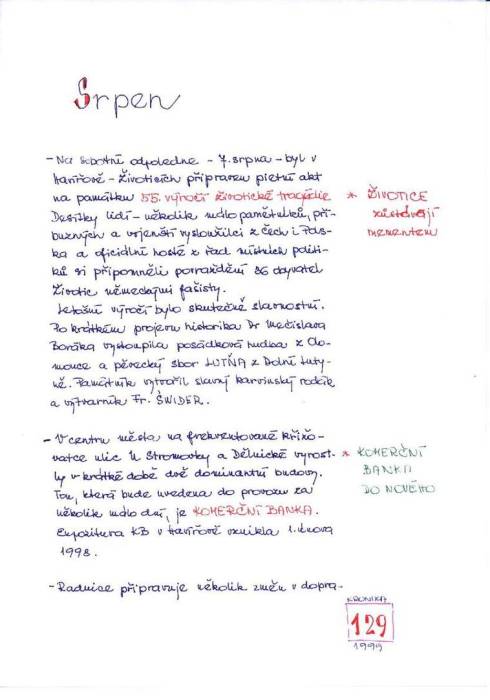 Srpen
- Na sobotní odpoledne - 7. srpna - byl v
Havířově - Životicích připraven pietní akt
na památku 55. výročí životické tragédie
* ŽIVOTICE
zůstávají
mementem
Desítky lidí - několik málo pamětníků, pří-
buzných a vojenští vysloužilci z Čech i Pols-
ka a oficiální hosté z řad místních politi-
ků si připomněli povraždění 36 obyvatel
Životic německými fašisty.
Letošní výročí bylo skutečně slavnostní.
Po krátkém projevu historika Dr Mečislava
Boráka vystoupila posádková hudba z Olo-
mouce a pěvecký sbor LUTŇA z Dolní Luty-
ně. Památník vytvořil slavný karvinský rodák
a výtvarník Fr. ŚWIDER.
- V centru města na frekventované křižo-
vatce ulic U Stromovky a Dělnické vyrost-
ly v krátké době dvě dominantní budovy.
Tou, která bude uvedena do provozu za
několik málo dní, je KOMERČNÍ BANKA.
Expozitura KB v Havířově vznikla 1. února
1998.
* KOMERČNÍ
BANKA
DO NOVÉHO
- Radnice připravuje několik změn v dopra-
KRONIKA
129
1999